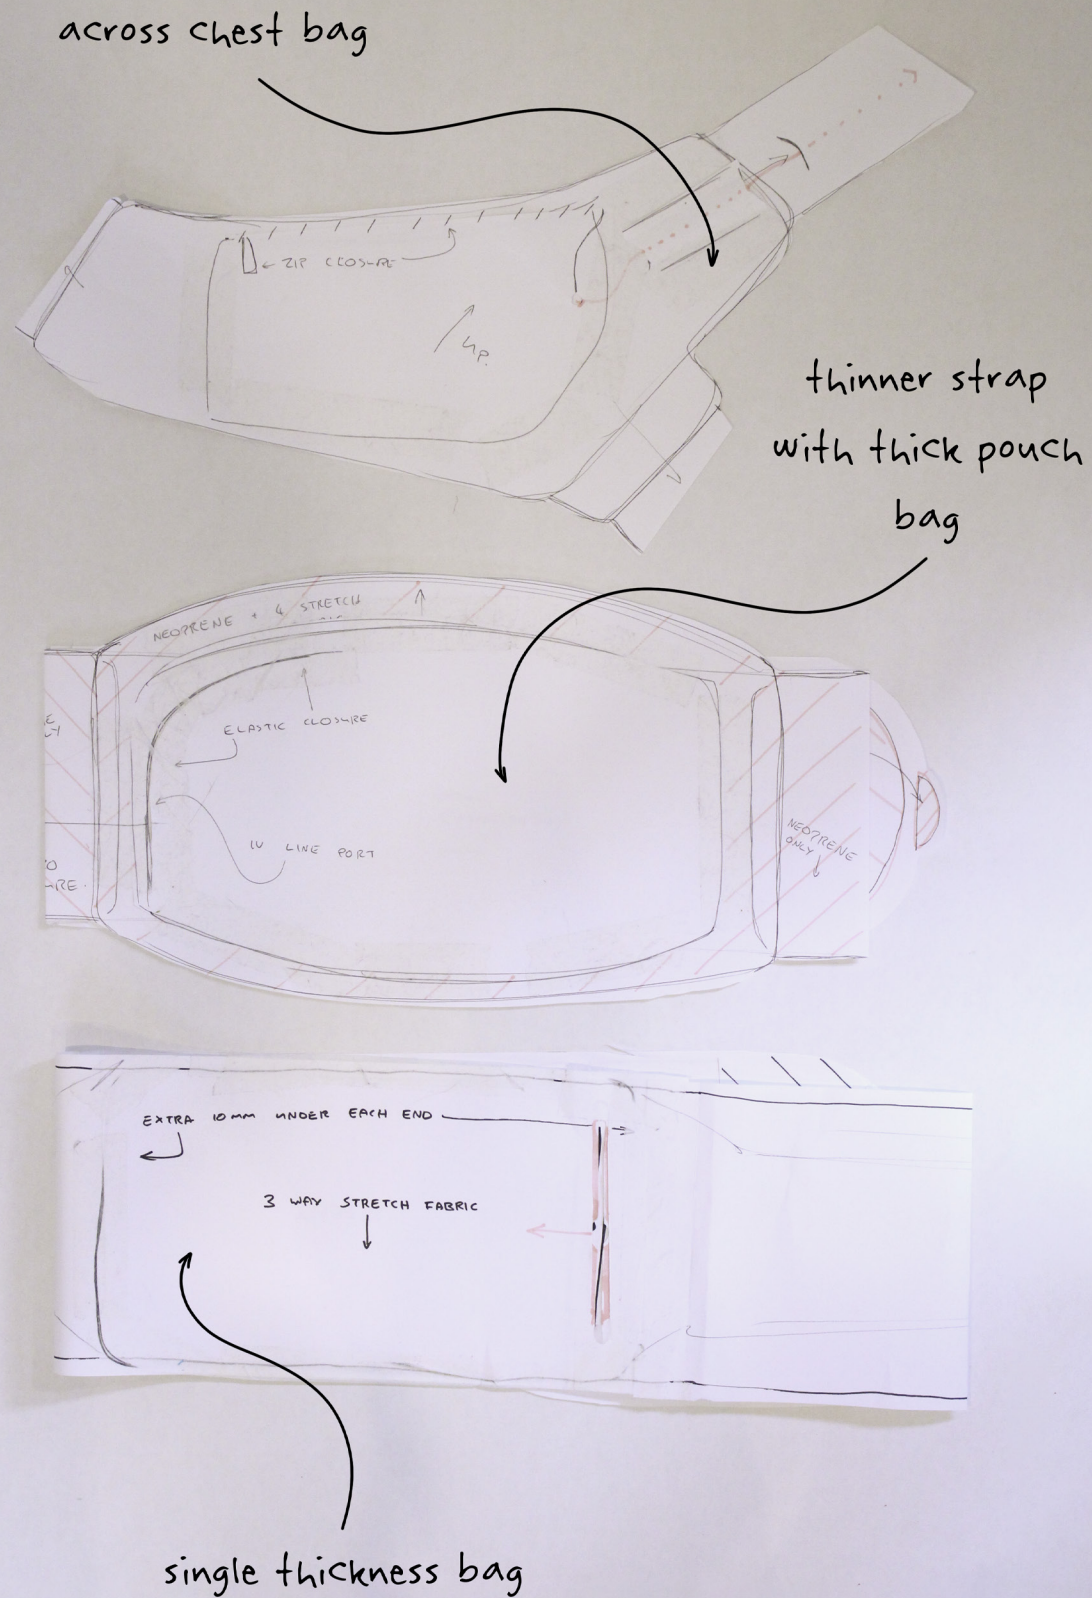 across chest bag
ZIP CLOSURE
UP.
thinner strap
with thick pouch
bag
NEOPRENE + 4 STRETCH
ELASTIC CLOSURE
IV LINE PORT
NEOPRENE
ONLY
EXTRA 10mm UNDER EACH END
3 WAY STRETCH FABRIC
single thickness bag